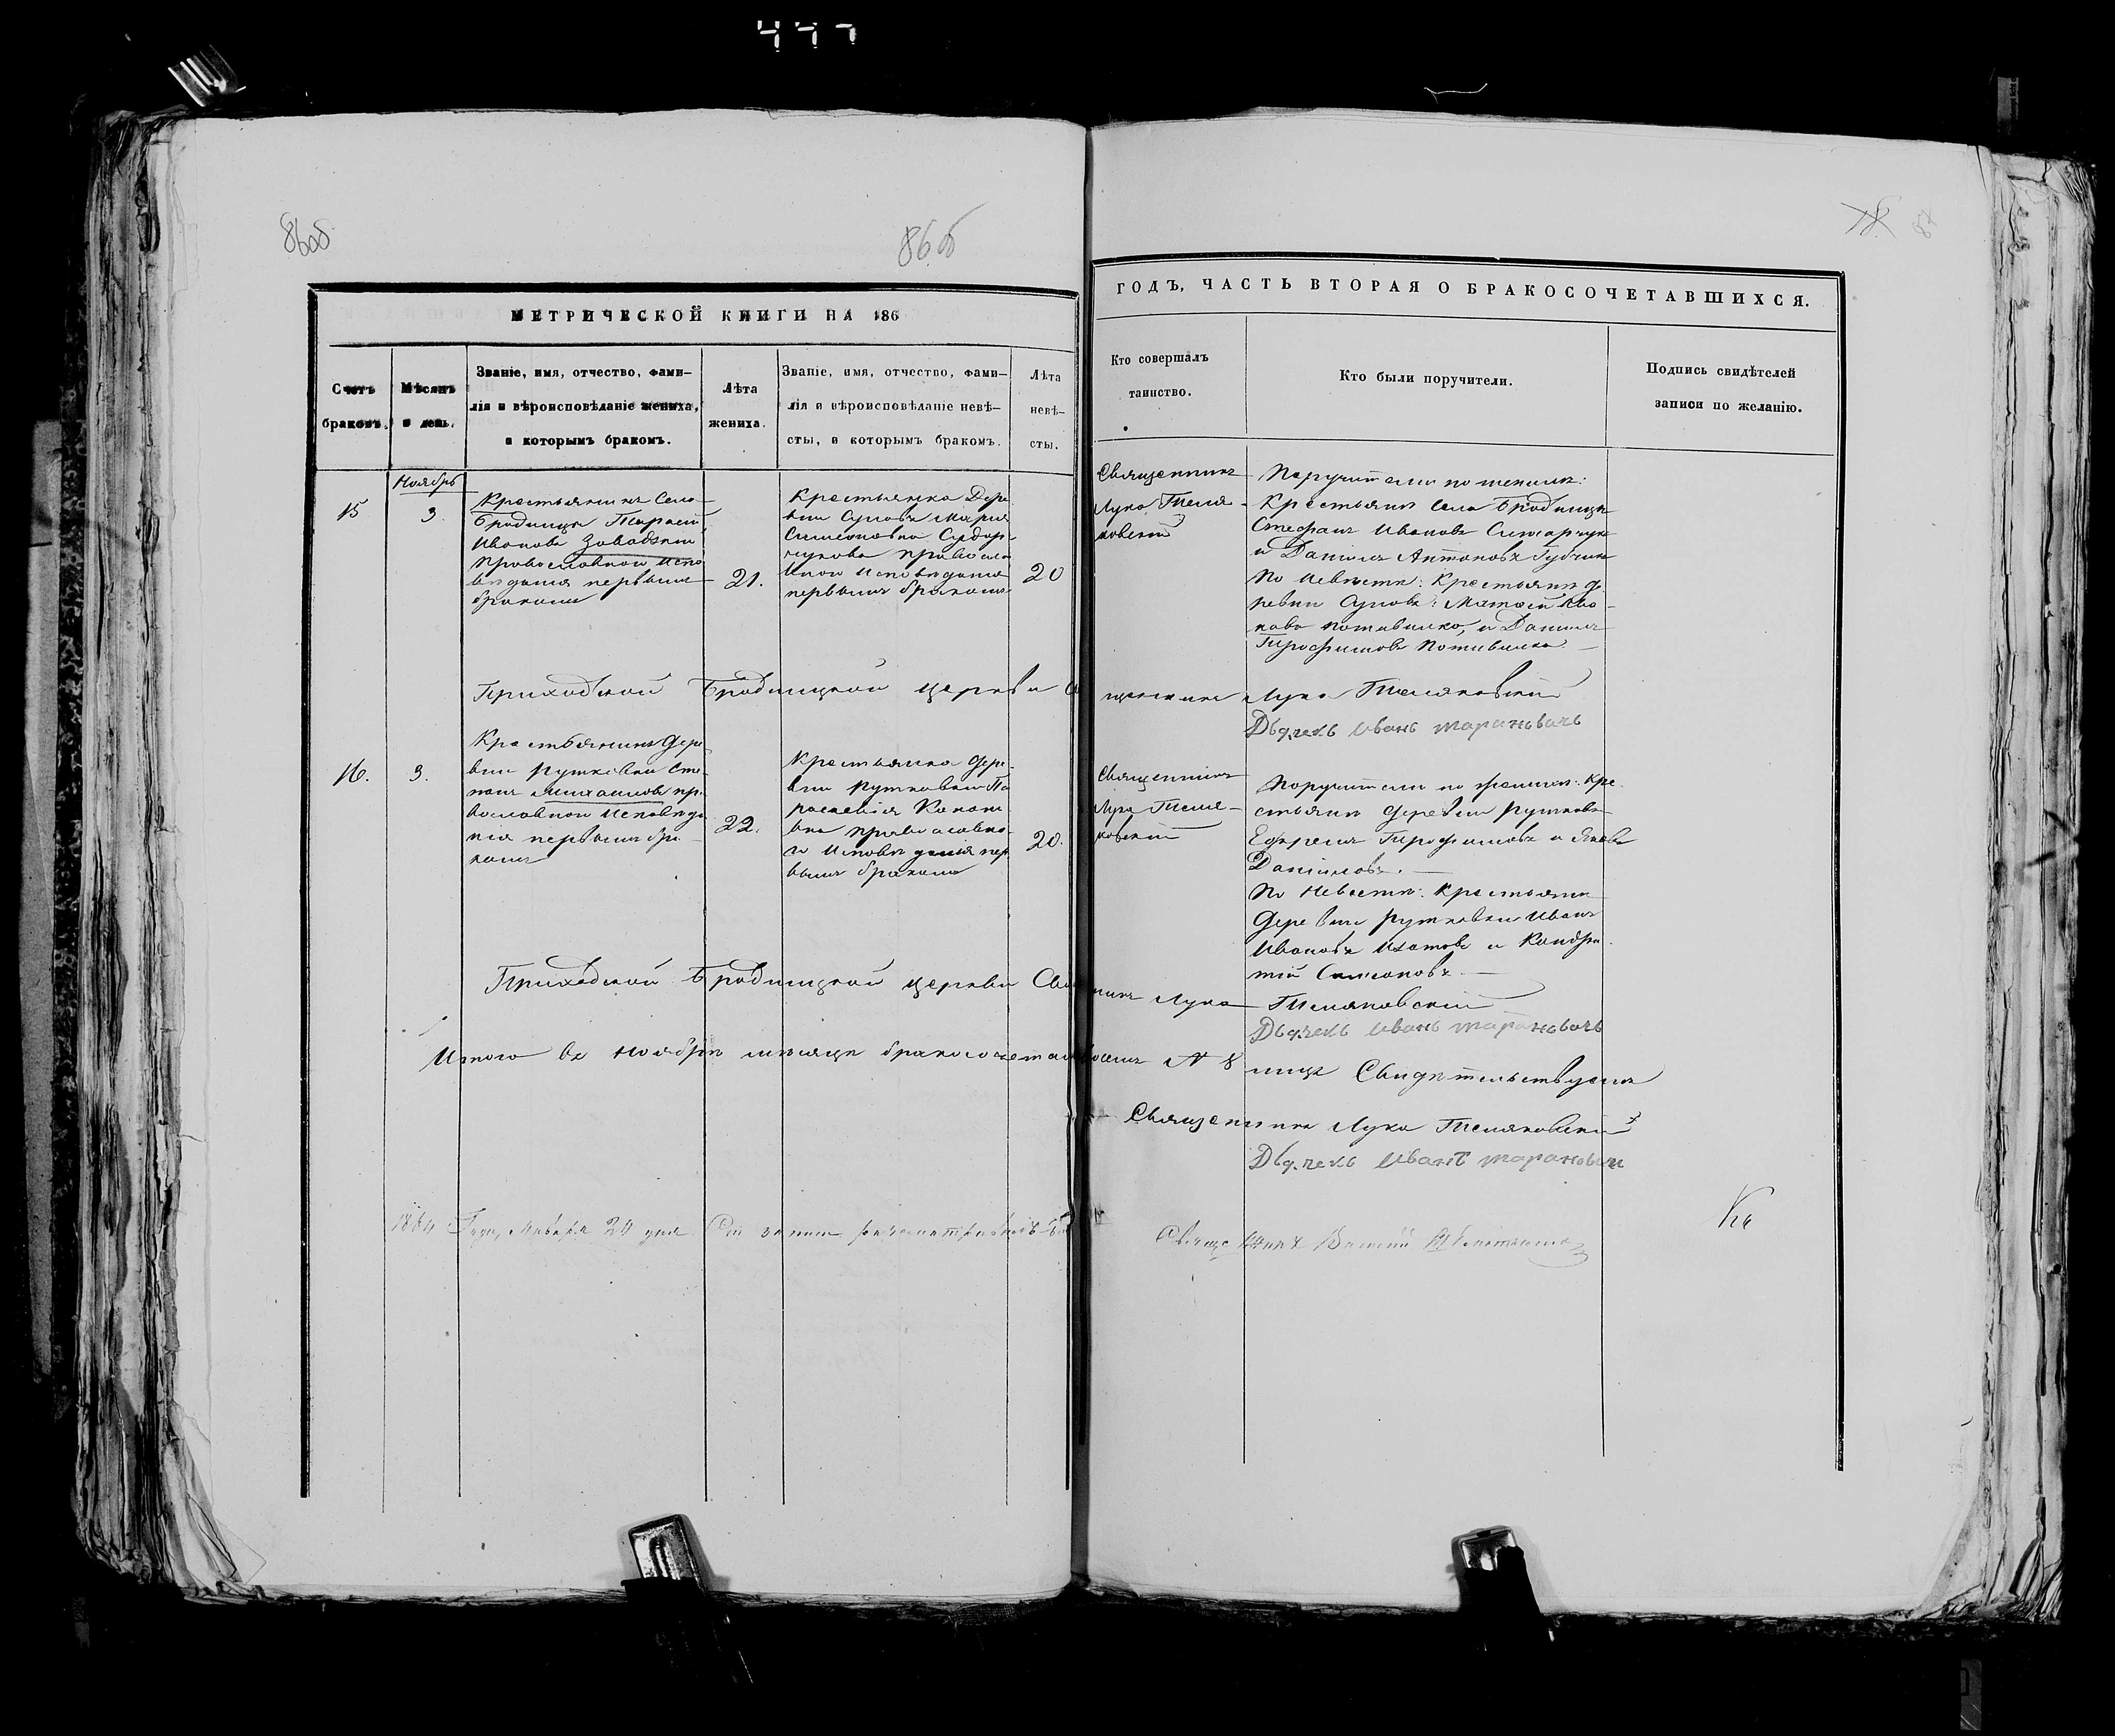 477
86об
86об
78
МЕТРИЧЕСКОЙ КНИГИ НА 186
ГОДЪ, ЧАСТЬ ВТОРАЯ О БРАКОСОЧЕТАВШИХСЯ.
Счетъ
браковъ.
Мѣсяцъ
и день.
Званіе, имя, отчество, фами-
лія и вѣроисповѣданіе жениха,
и которымъ бракомъ.
Лѣта
жениха.
Званіе, имя, отчество, фами-
лія и вѣроисповѣданіе невѣ-
сты, и которымъ бракомъ.
Лѣта
невѣ-
сты.
Кто совершалъ
таинство.
Кто были поручители.
Подпись свидѣтелей
записи по желанію.
Ноябрь
15
3.
Крестьянинъ Села
Бродницы Тарасій
Ивановъ Заводный
православнои Испо
вѣданія первымъ
бракомъ
21.
Крестьянка Дере
вни Марія
Симеоновна
православ
нои Исповѣданія
первымъ бракомъ
20
Священникъ
Лука Теля-
ковскій
Поручители по женихѣ:
Крестьяни Села Бродницы
Стефанъ Ивановъ
и Даниилъ Антоновъ
по Невѣсти: Крестьяни де
ревни Матфей Ива-
новъ и Даниилъ
Трофимовъ
Приходской Бродницкой церкви Священникъ Лука Теляковскій
Дьячекъ Иванъ тарановичъ
16.
3.
Крестьянинъ дере
вни Рутковки Сте-
панъ Михаиловъ пра
вославнои Исповѣда
нія первымъ бра
комъ
22.
Крестьянка дере-
вни Рутковки Па
раскевія
вна православно-
го Исповѣданія пер
вымъ бракомъ
20.
Священникъ
Лука Теля-
ковскій
Поручители по женихѣ: Кре
стьяни деревни Рутковки
Ефремъ Трофимовъ и Яковъ
Даниловъ.
По Невестѣ: Крестьяни
деревни Рутковки Иванъ
Ивановъ и Кондра-
тій Симеоновъ.
Приходской Бродницкой церкви Священникъ Лука Теляковскій
Дьячекъ Иванъ тарановичъ
Итого въ Ноябрѣ мѣсяцѣ бракосочетавшихся № 8 лицъ Свидѣтельствуемъ
Священникъ Лука Теляковскій
Дьячекъ Иванъ тарановичъ
1864 Года, Января 20 дня Сіи записи
Священникъ Василій